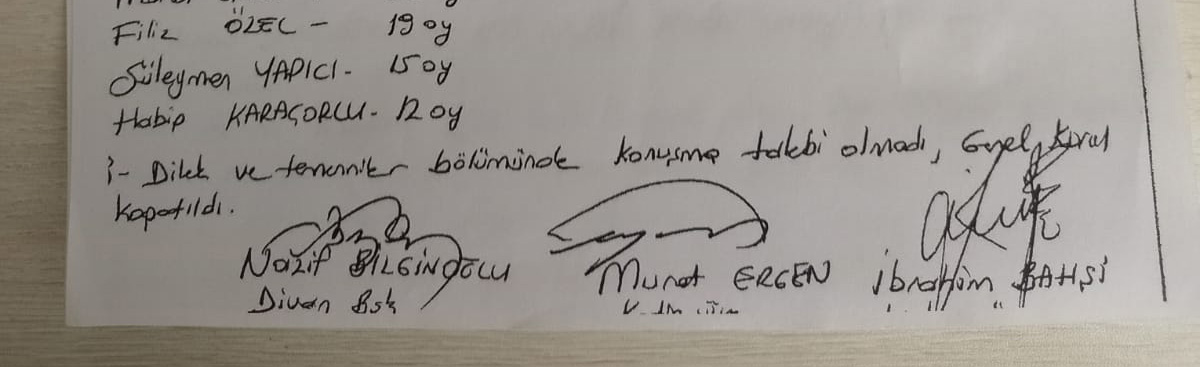 Filiz ÖZEL - 19 oy
Süleyman YAPICI - 15 oy
Habip KARAÇORLU - 12 oy
i- Dilek ve temenniler bölümünde konuşma talebi olmadı, Genel Kurul
kapatıldı.
Nazif BİLGİNOĞLU Murat ERGEN İbrahim BAHŞİ
Divan Bşk